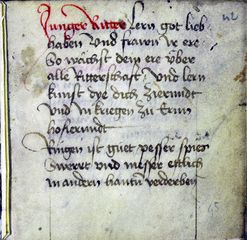 Junger Ritter lern got lieb
haben Vnd frawen Ir ere
So wachst dein ere Vber
alle Ritterschaft Vnd lern
kunst dye dich Zierendt
Vnd In kriegen Zu Ern
hofierendt
Ringen ist guet pesser spies
Swert Vnd messer etlich
In andern hantn verderben